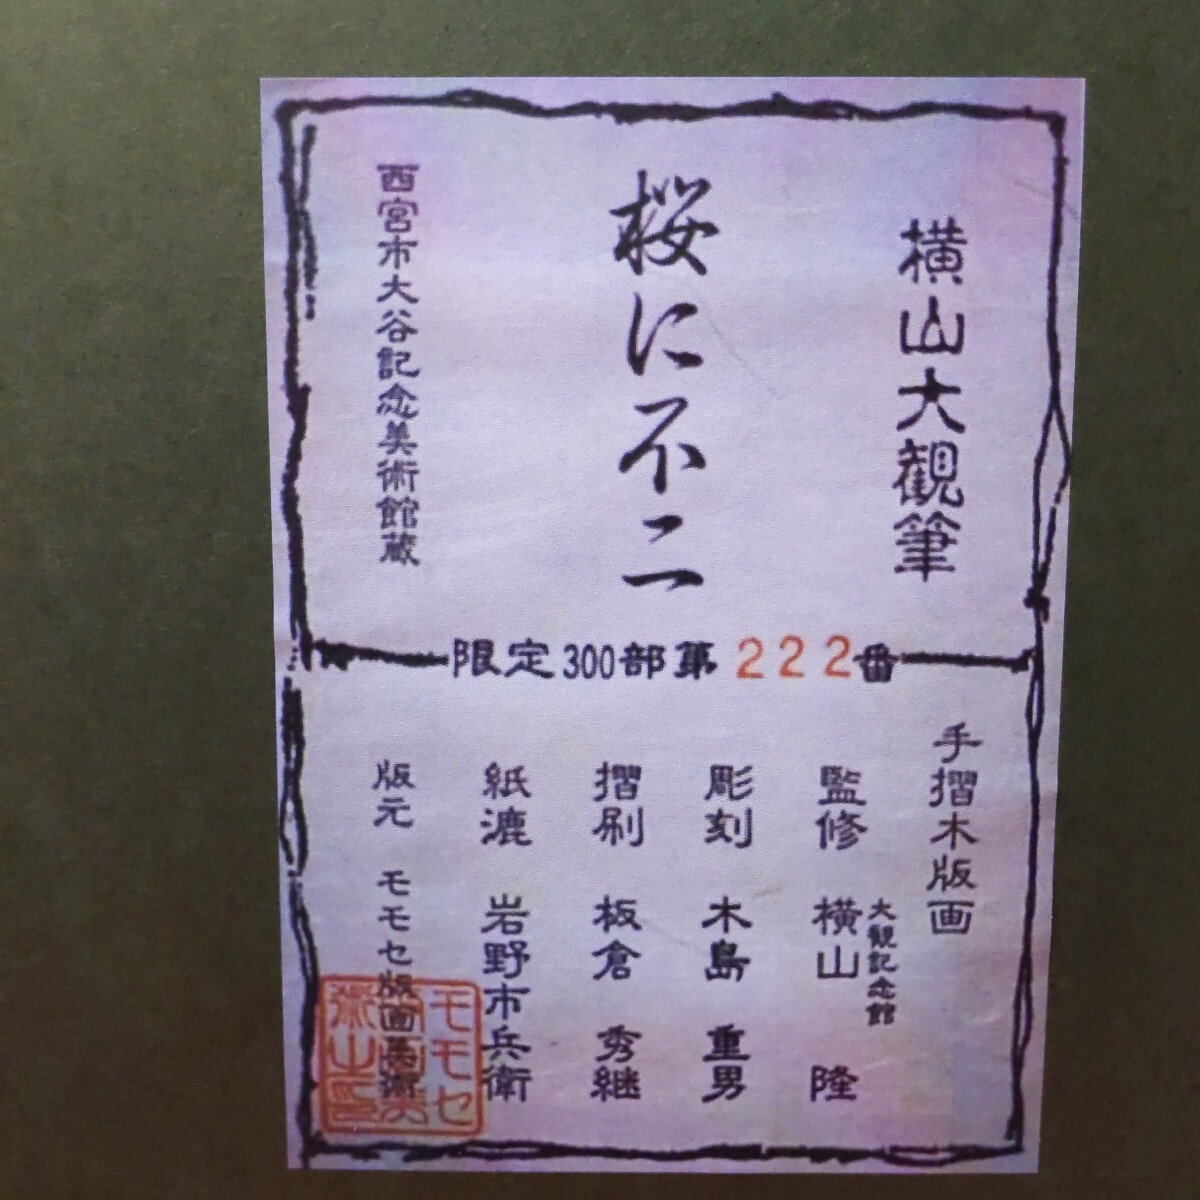 横山大観筆
桜に不二
西宮市大谷記念美術館蔵
限定300部第222番
手摺木版画
大観記念館
監修 横山 隆
彫刻 木島 重男
摺刷 板倉 秀継
紙漉 岩野市兵衛
版元 モモセ版画美術